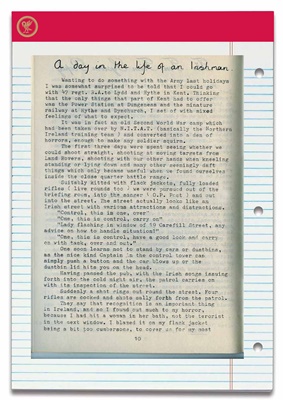 A day in the life of an Irishman
Wanting to do something with the Army last holidays
I was somewhat surprised to be told that I could go
with 47 regt. R.A. to Lydd and Hythe in Kent. Thinking
that the only things that part of Kent had to offer
was the Power Station at Dungeness and the minature
railway at Hythe and Dymchurch, I set of with mixed
feelings of what to expect.
It was in fact an old Second World War camp which
had been taken over by N.I.T.A.T. (basically the Northern
Ireland training team) and converted into a den of
horrors, enough to make any soldier squirm.
The first three days were spent seeing whether we
could shoot straight, shooting at moving targets from
Land Rovers, shooting with our other hands when kneeling
standing or lying down and many other seemingly daft
things which only become useful when we found ourselves
inside the oldest quarter battle range.
Suitably kitted with flack jackets, fully loaded
rifles (live rounds too) we were pushed out of the
briefing room, into the sanger (O.P. Post) and out
into the street. The street actually looks like an
Irish street with various attractions and distractions.
"Control, this is one, over"
"One, this is control, carry on"
"Lady flashing in window of 59 Carefill Street, any
advice on how to handle situation?"
"One, this is control, have a good look and carry
on with task, over and out."
One soon learns not to stand by cars or dustbins,
as the nice kind Captain in the control tower can
simply push a button and the car blows up or the
dustbin lid hits you on the head.
Having passed the pub, with the Irish songs issuing
forth into the cold night air, the patrol carries on
with its inspection of the street.
Suddenly a shot rings out round the street. Four
rifles are cocked and shots sally forth from the patrol.
They say that recognition is an important thing
in Ireland, and as I found out much to my horror,
because I had hit a woman in her bath, not the terrorist
in the next window. I blamed it on my flack jacket
being a bit too cumbersome, to cover up for my most
10